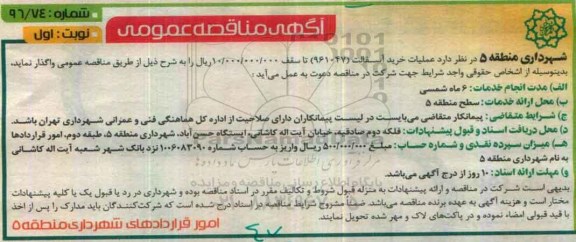 شماره: ۹۶/۷۴
نوبت: اول
آگهی مناقصه عمومی
شهرداری منطقه ۵ در نظر دارد عملیات خرید آسفالت (۴۷-۹۶۱) تا سقف ۱۰/۰۰۰/۰۰۰/۰۰۰ریال را به شرح ذیل از طریق مناقصه عمومی واگذار نماید،
بدینوسیله از اشخاص حقوقی واجد شرایط جهت شرکت در مناقصه دعوت به عمل می‌آید:
الف) مدت انجام خدمات: ۶ ماه شمسی
ب) محل ارائه خدمات: سطح منطقه ۵
ج) شرایط متقاضی: پیمانکار متقاضی می‌بایست در لیست پیمانکاران دارای صلاحیت از اداره کل هماهنگی فنی و عمرانی شهرداری تهران باشد.
د) محل دریافت اسناد و قبول پیشنهادات: فلکه دوم صادقیه، خیابان آیت اله کاشانی، ایستگاه حسن آباد، شهرداری منطقه ۵، طبقه دوم، امور قراردادها
هـ) میزان سپرده نقدی و شماره حساب: مبلغ ۵۰۰/۰۰۰/۰۰۰ ریال واریز به حساب شماره ۱۰۰۶۰۸۳۰۹۰ نزد بانک شهر شعبه آیت اله کاشانی
به نام شهرداری منطقه ۵
و) مهلت ارائه اسناد: ۱۰ روز از درج آگهی می‌باشد.
بدیهی است شرکت در مناقصه و ارائه پیشنهادات به منزله قبول شروط و تکالیف مقرر در اسناد مناقصه بوده و شهرداری در رد یا قبول یک یا کلیه پیشنهادات
مختار است و هزینه آگهی به عهده برنده مناقصه می‌باشد. ضمناً مشروح شرایط مناقصه در اسناد درج شده است که شرکت‌کنندگان باید مدارک را پس از اخذ
با قید قبولی امضاء نموده و در پاکت‌های لاک و مهر شده تحویل نمایند.
امور قراردادهای شهرداری منطقه ۵